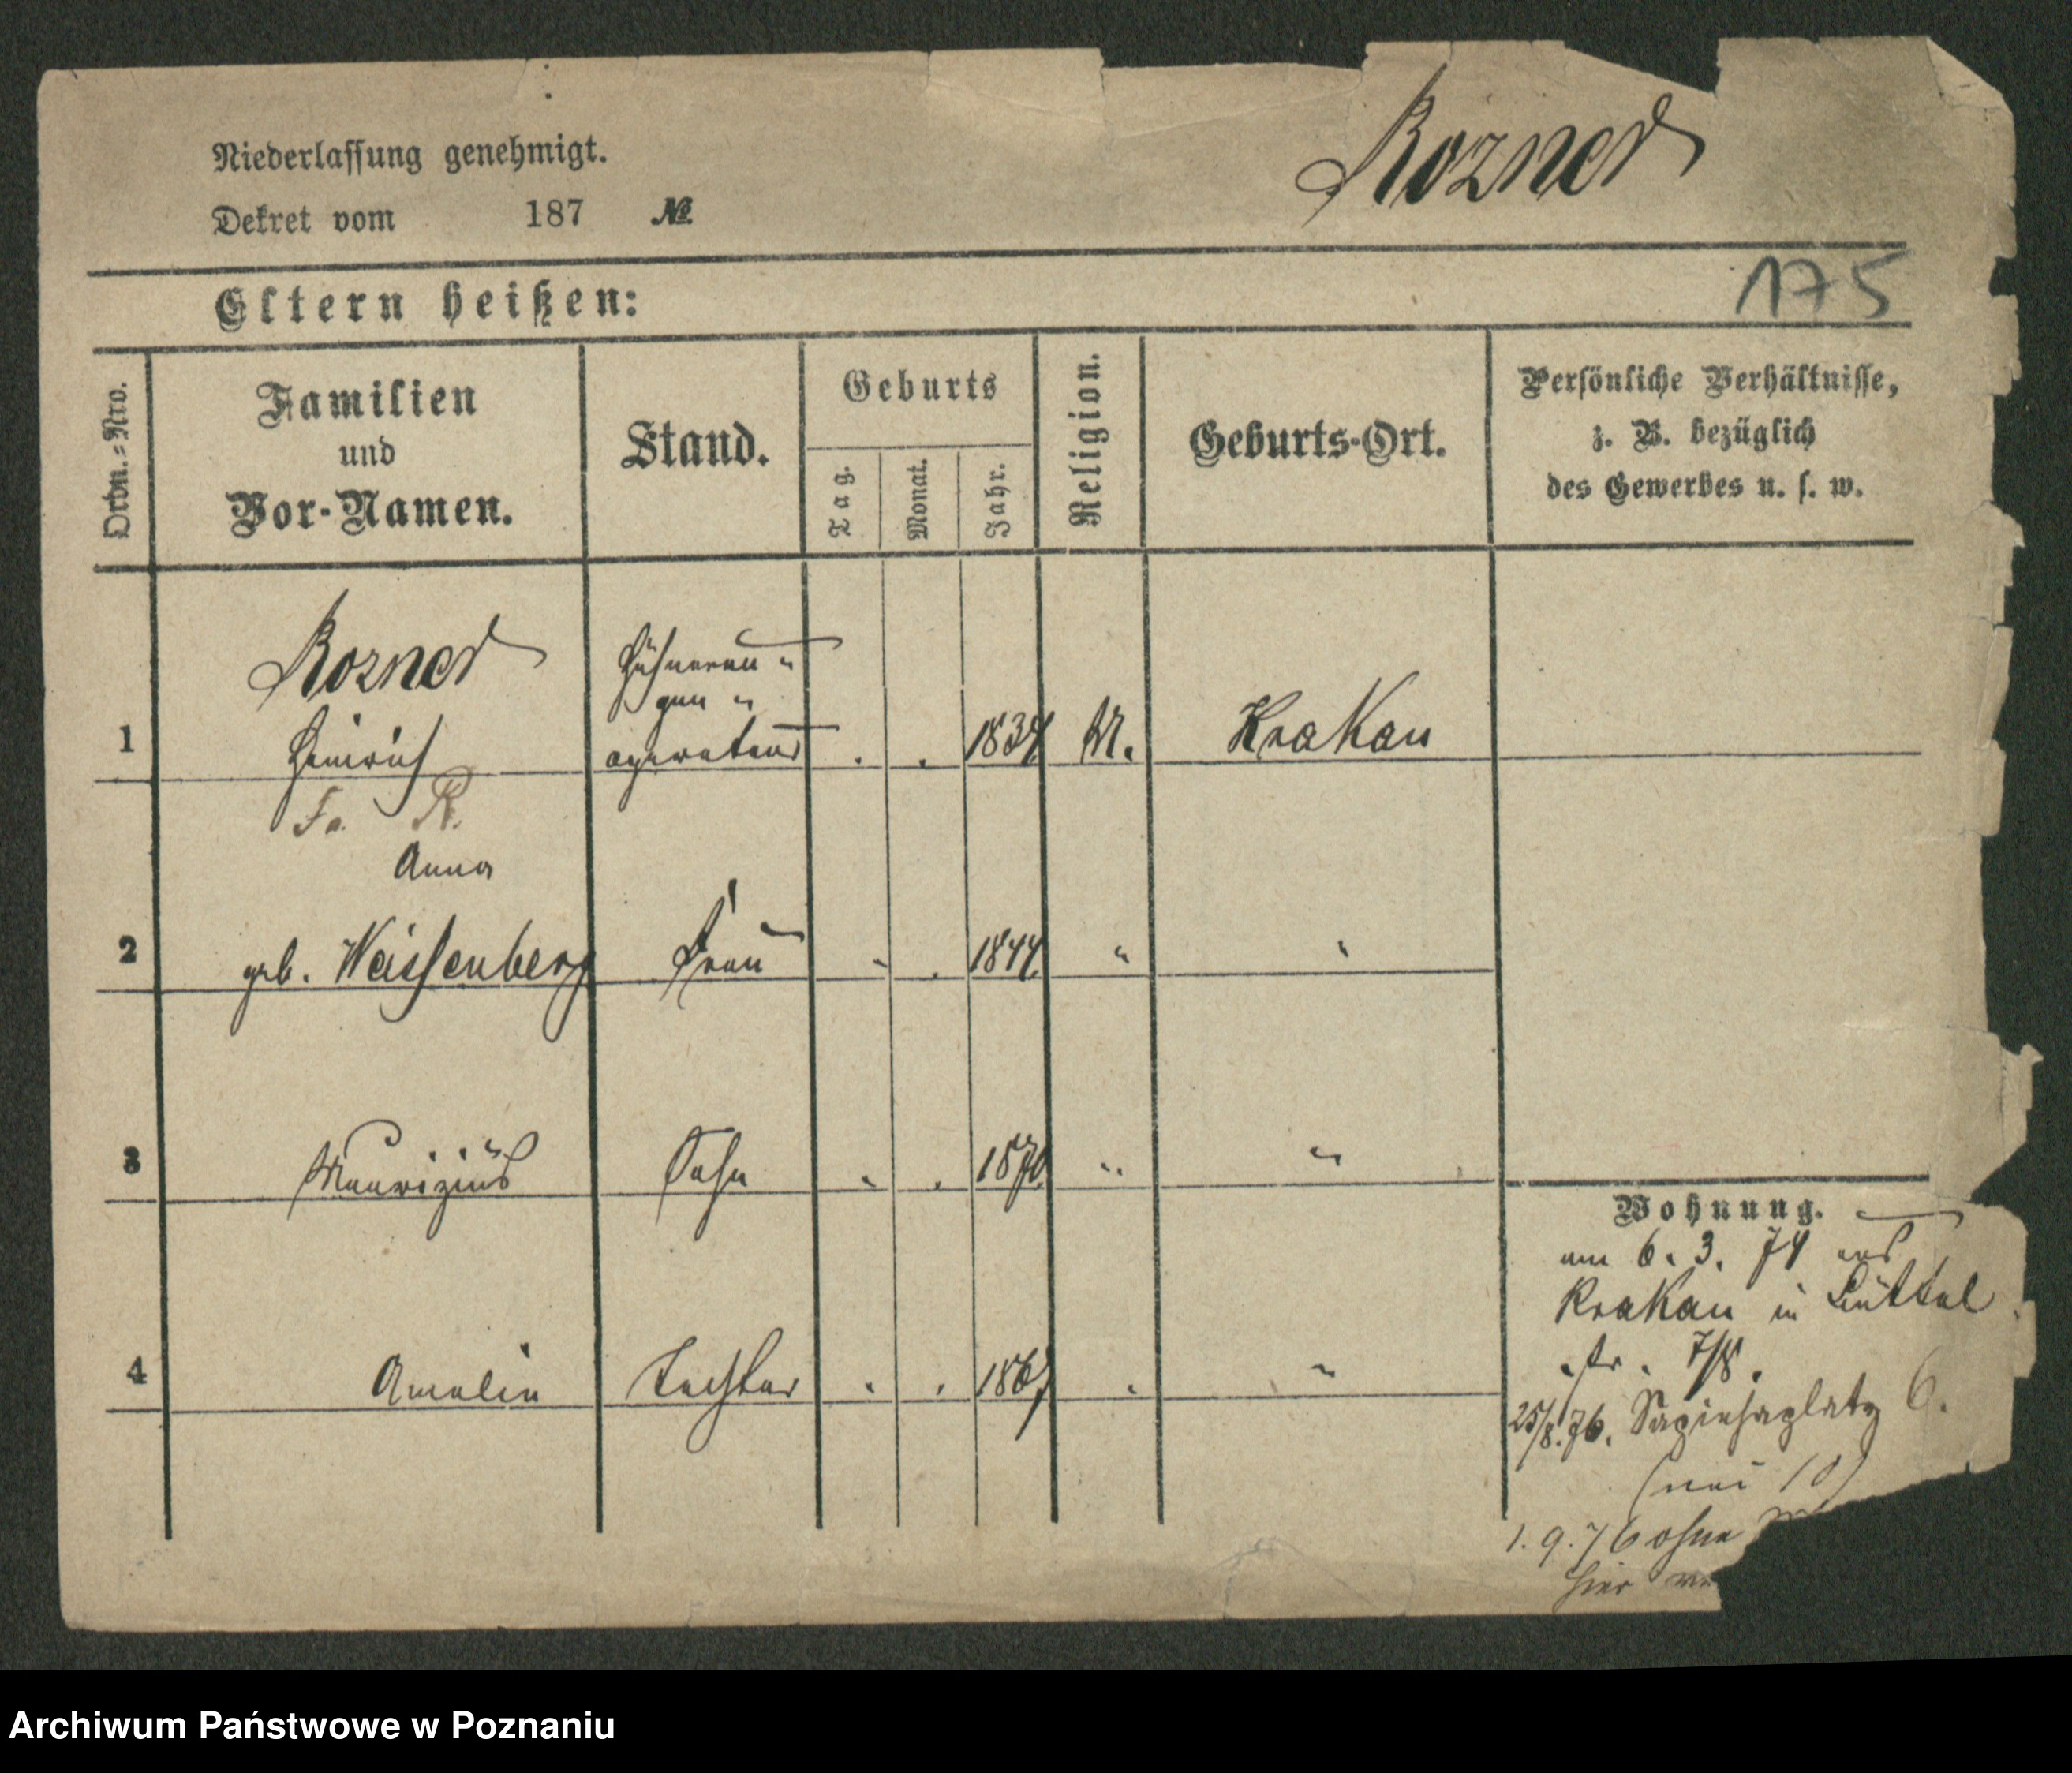 Niederlassung genehmigt.
Dekret vom 187 No.
Rozner
175
Eltern heißen:
Ordn.=Nro.
Familien
und
Vor-Namen.
Stand.
Geburts
Tag.
Monat.
Jahr.
Religion.
Geburts-Ort.
Persönliche Verhältnisse,
z. B. bezüglich
des Gewerbes u. s. w.
Rozner
Hühnerau-
gen-
1 Heinrich operateur . . 1834 M. Krakau
Fr. R.
Anna
2 geb. Weissenberg Frau . . 1844 " "
3 Maurizius Sohn . . 1870 " "
Wohnung.
am 6. 3. 74 aus
Krakau in Büttel
str. 7/8.
4 Amalie Tochter . . 1867 . "
25/8.76. Sapiehaplatz 6.
(neu 10)
1.9.76 ohne
hier
Archiwum Państwowe w Poznaniu